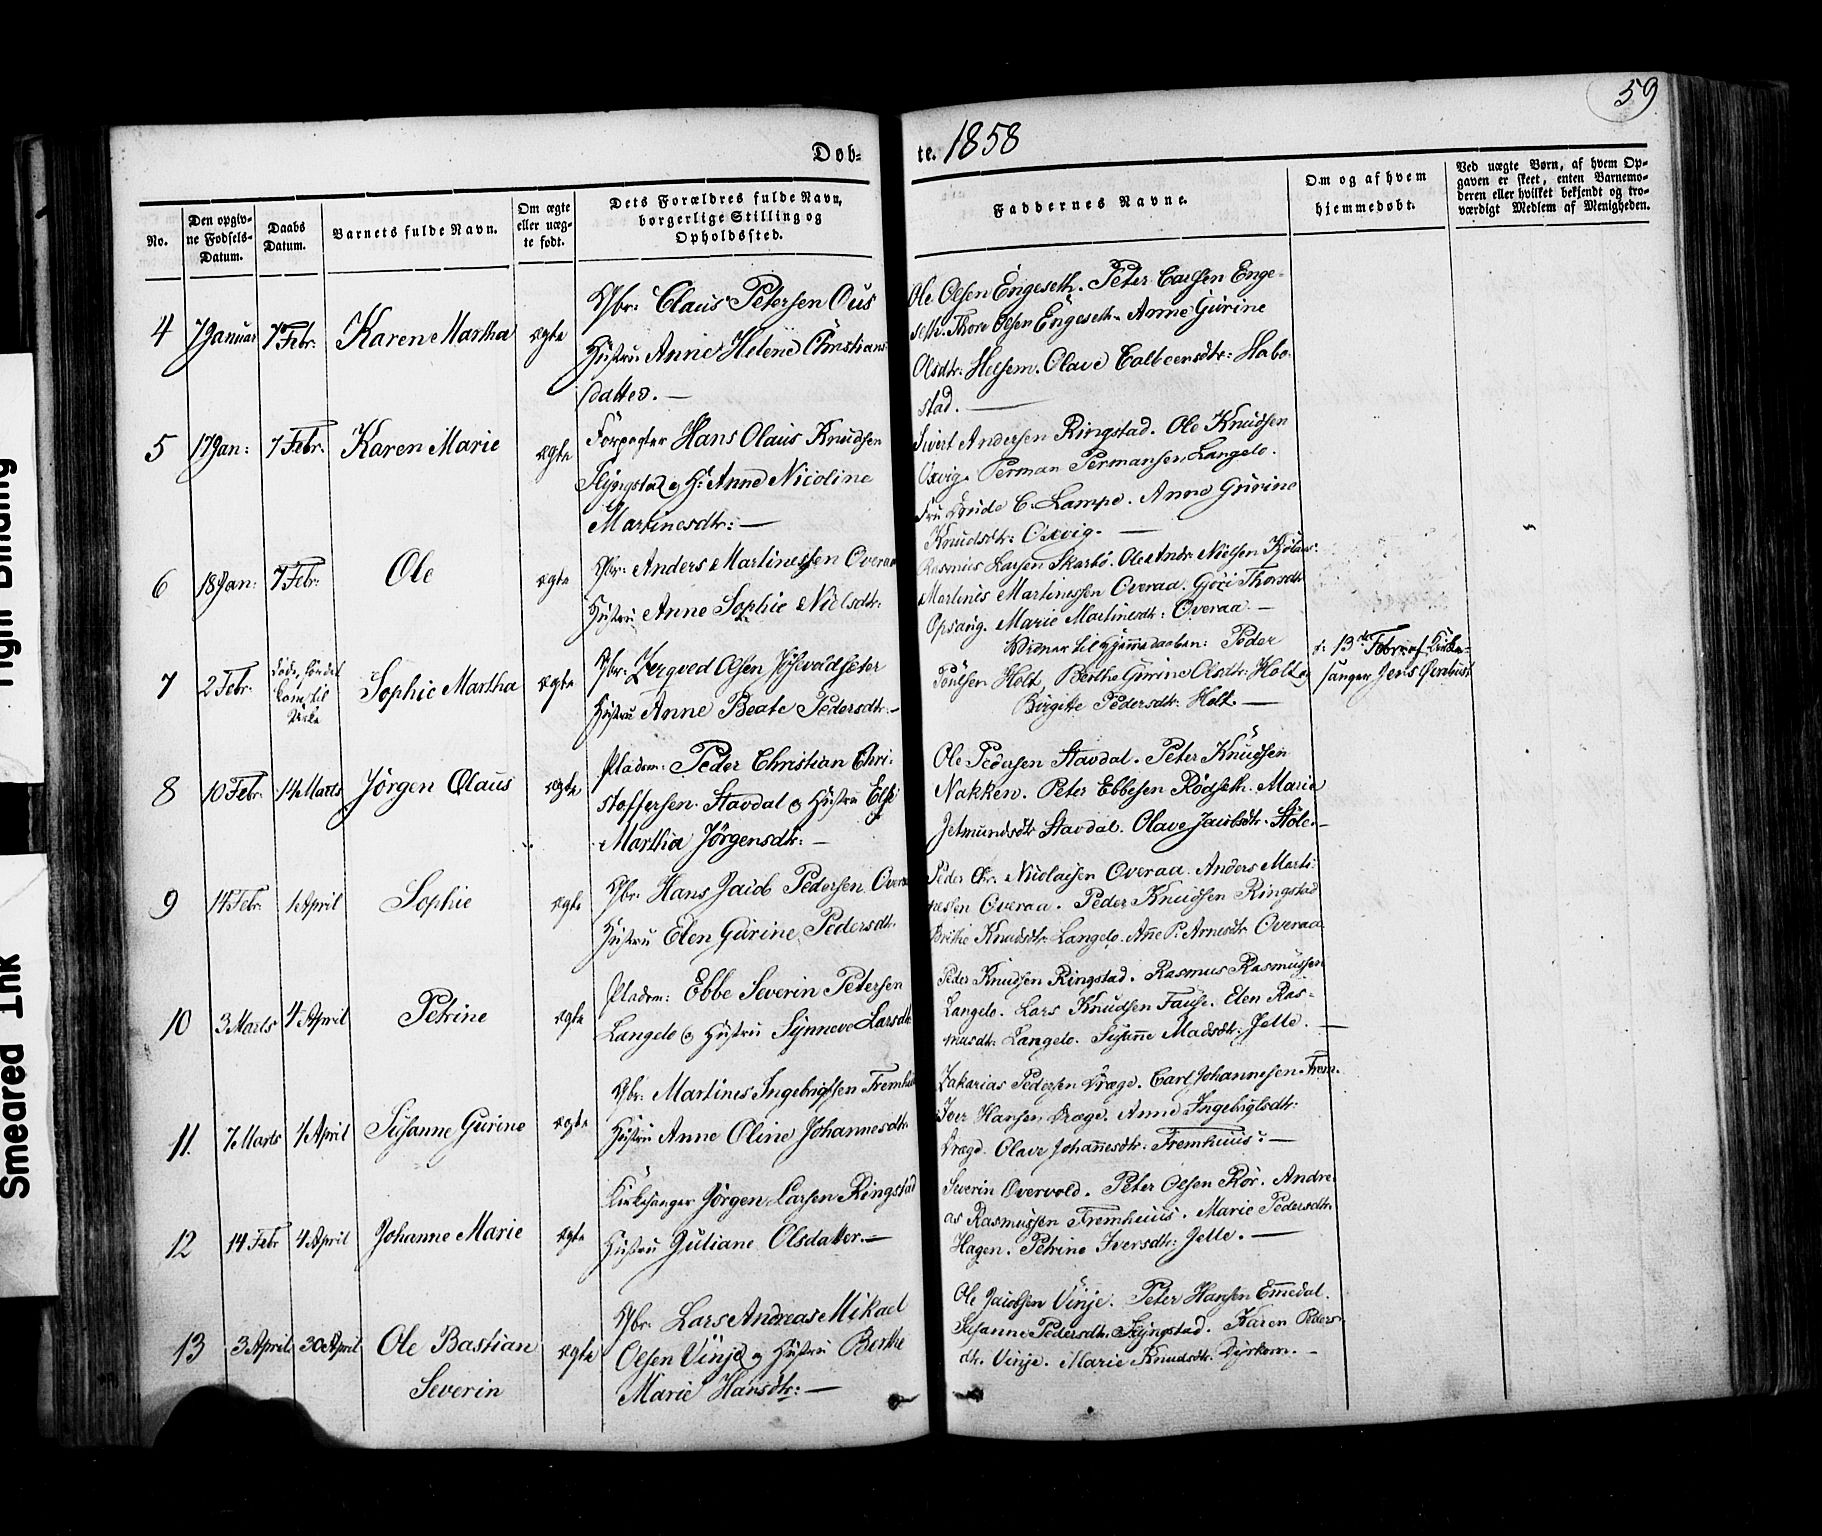 59
Døb- te. 1858
No.
Den opgiv-
ne Fødsels-
Datum.
Daabs
Datum.
Barnets fulde Navn.
Om ægte
eller uæg-
te født.
Dets Forældres fulde Navn,
borgerlige Stilling og
Opholdssted.
Faddernes Navne.
Om og af hvem
hjemmedøbt.
Ved uægte Børn, af hvem Op-
gaven er skeet, enten Barnemo-
deren eller hvilket bekjendt og tro-
værdigt Medlem af Menigheden.
4 7 Januar 7 Febr. Karen Martha ægte
Gbr: Claus Petersen Ous
Hustru Anne Helene Christians-
datter. —
Ole Olsen Engeseth. Peter Carlsen Enge-
seth. Thore Olsen Engeseth. Anne Gurine
Olsdtr: Helsem. Olave
stad. —
5 17 Jan: 7 Febr. Karen Marie ægte
Forpagter Hans Olaus Knudsen
Slyngstad og H: Anne Nicoline
Martinesdtr: —
Sivert Andersen Ringstad. Ole Knudsen
Oxvig. Perman Permansen Langelo.
Fru C. Lampe. Anne Gurine
Knudsdtr: Oxvig. —
6 18 Jan: 7 Febr: Ole ægte
Gbr: Anders Martinessen Overaa
Hustru Anne Sophie Nielsdtr:
Rasmus Larsen Skarbö. Ole Andr. Nielsen
Martines Martinessen Overaa. Gjöri Thorsdtr
Opsaug. Marie Martinesdtr: Overaa —
7 2 Febr. Sophie Martha ægte
Gbr: Olsen
Hustru Anne Beate Pedersdtr: —
Vidner til Hjemmedaaben: Peder
Poulsen Holt, Berthe Gurine Olsdtr: Holt og
Birgitte Pedersdtr: Holt. —
d: 13de Febr: af Kirke-
sanger Jens
8 10 Febr. 14 Marts Jörgen Olaus ægte
Pladsm: Peder Christian Chri-
stoffersen Stavdal og Hustru Else
Martha Jörgensdtr: —
Ole Pedersen Stavdal. Peter Knudsen
Nakken. Peter Ebbesen Rödseth. Marie
Jetmundsdtr Stavdal. Olave Jacobsdtr. Stöle. —
9 14 Febr. 1 April Sophie ægte
Gbr. Hans Jacob Pedersen Overaa
Hustru Elen Gurine Pedersdtr.
Peder Chr. Nicolaisen Overaa. Anders Marti-
nessen Overaa. Peder Knudsen Ringstad
Brithe Knudsdtr. Langelo. Anne P. Arnesdtr Overaa
10 3 Marts 4 April Petrine ægte
Pladsm: Ebbe Severin Petersen
Langelo og Hustru Synneve Larsdtr
Peder Knudsen Ringstad. Rasmus Rasmussen
Langelo. Lars Knudsen Fause. Elen Ras-
musdtr: Langelo. Susanne Madsdtr: Jelle. —
11. 7 Marts 4 April Susanne Gurine ægte
Gbr. Martines Ingebrigtsen Fremhus
Hustru Anne Oline Johannesdtr.
Zakarias Pedersen Drage. Carl Johannesen Frem.
Iver Hansen Drage. Anne Ingebrigtsdtr:
Drage. Olave Johannesdtr: Fremhuus: —
12 14 Febr 4 April Johanne Marie ægte
Kirkesanger Jörgen Larsen Ringstad
Hustru Juliane Olsdatter. —
Severin Overvold. Peter Olsen Rör. Andre-
as Rasmussen Fremhuus. Marie Pedersdtr.
Hagen. Petrine Iversdtr: Jelle. —
13 3 April 30 April Ole Bastian ægte
Severin
Gbr: Lars Andreas Mikael
Olsen Vinje og Hustru Berthe
Marie Hansdtr: —
Ole Jacobsen Vinje. Peter Hansen Emedal.
Susanne Pedersdtr. Slyngstad. Karen Peders-
dtr. Vinje. Marie Knudsdtr. Dyrkorn. —
Tight Binding
Smeared Ink